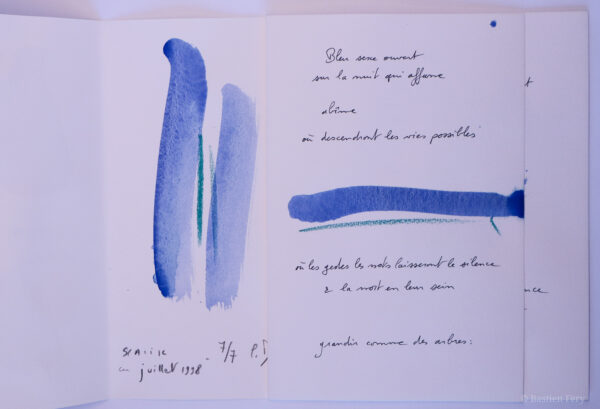 Bleu sexe ouvert
sur la nuit qui affame
abîme
où descendront les vies possibles
où les gestes les mots laisseront le silence
& la mort en leur sein
grandir comme des arbres:
en juillet 1998
7/7
© Bastien Fery